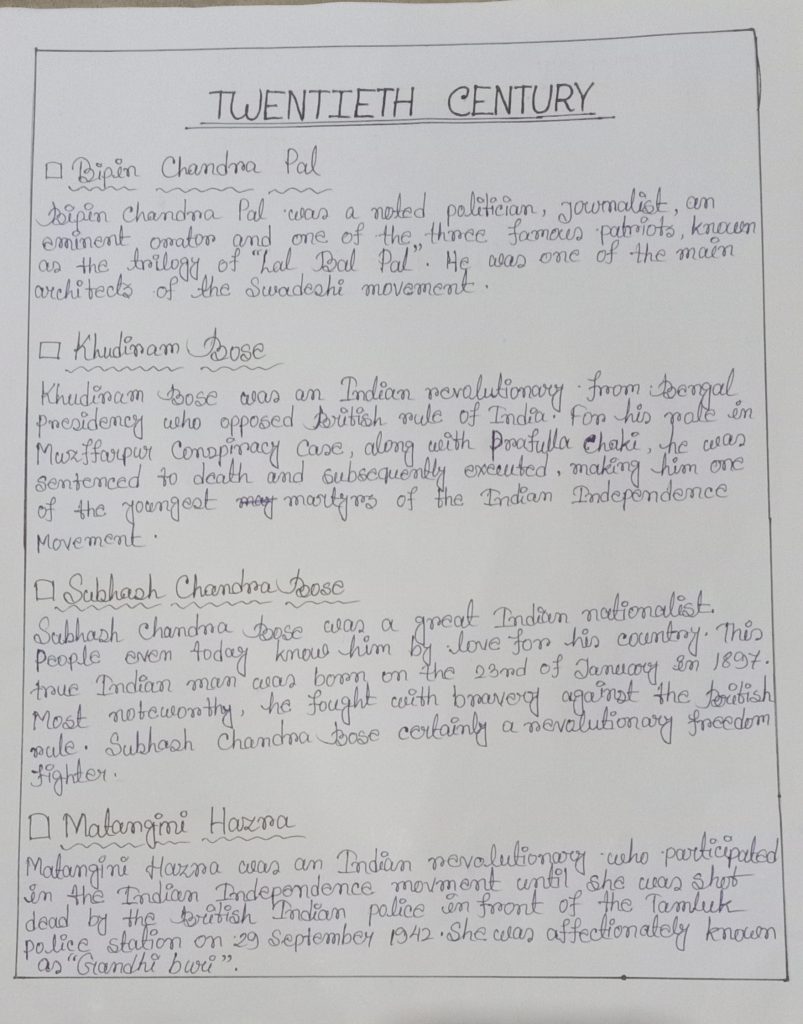 TWENTIETH CENTURY
Bipin Chandra Pal
Bipin Chandra Pal was a noted politician, journalist, an
eminent orator and one of the three famous patriots, known
as the trilogy of "Lal Bal Pal". He was one of the main
architects of the Swadeshi movement.
Khudiram Bose
Khudiram Bose was an Indian revolutionary from Bengal
Presidency who opposed British rule of India. For his role in
Muzffarpur Conspiracy Case, along with Prafulla Chaki, he was
sentenced to death and subsequently executed, making him one
of the youngest may martyrs of the Indian Independence
Movement.
Subhash Chandra Bose
Subhash Chandra Bose was a great Indian nationalist.
People even today know him by love for his country. This
true Indian man was born on the 23rd of January in 1897.
Most noteworthy, he fought with bravery against the British
rule. Subhash Chandra Bose certainly a revolutionary freedom
fighter.
Matangini Hazra
Matangini Hazra was an Indian revolutionary who participated
in the Indian Independence movment until she was shot
dead by the British Indian police in front of the Tamluk
police station on 29 September 1942. She was affectionately known
as "Gandhi buri".